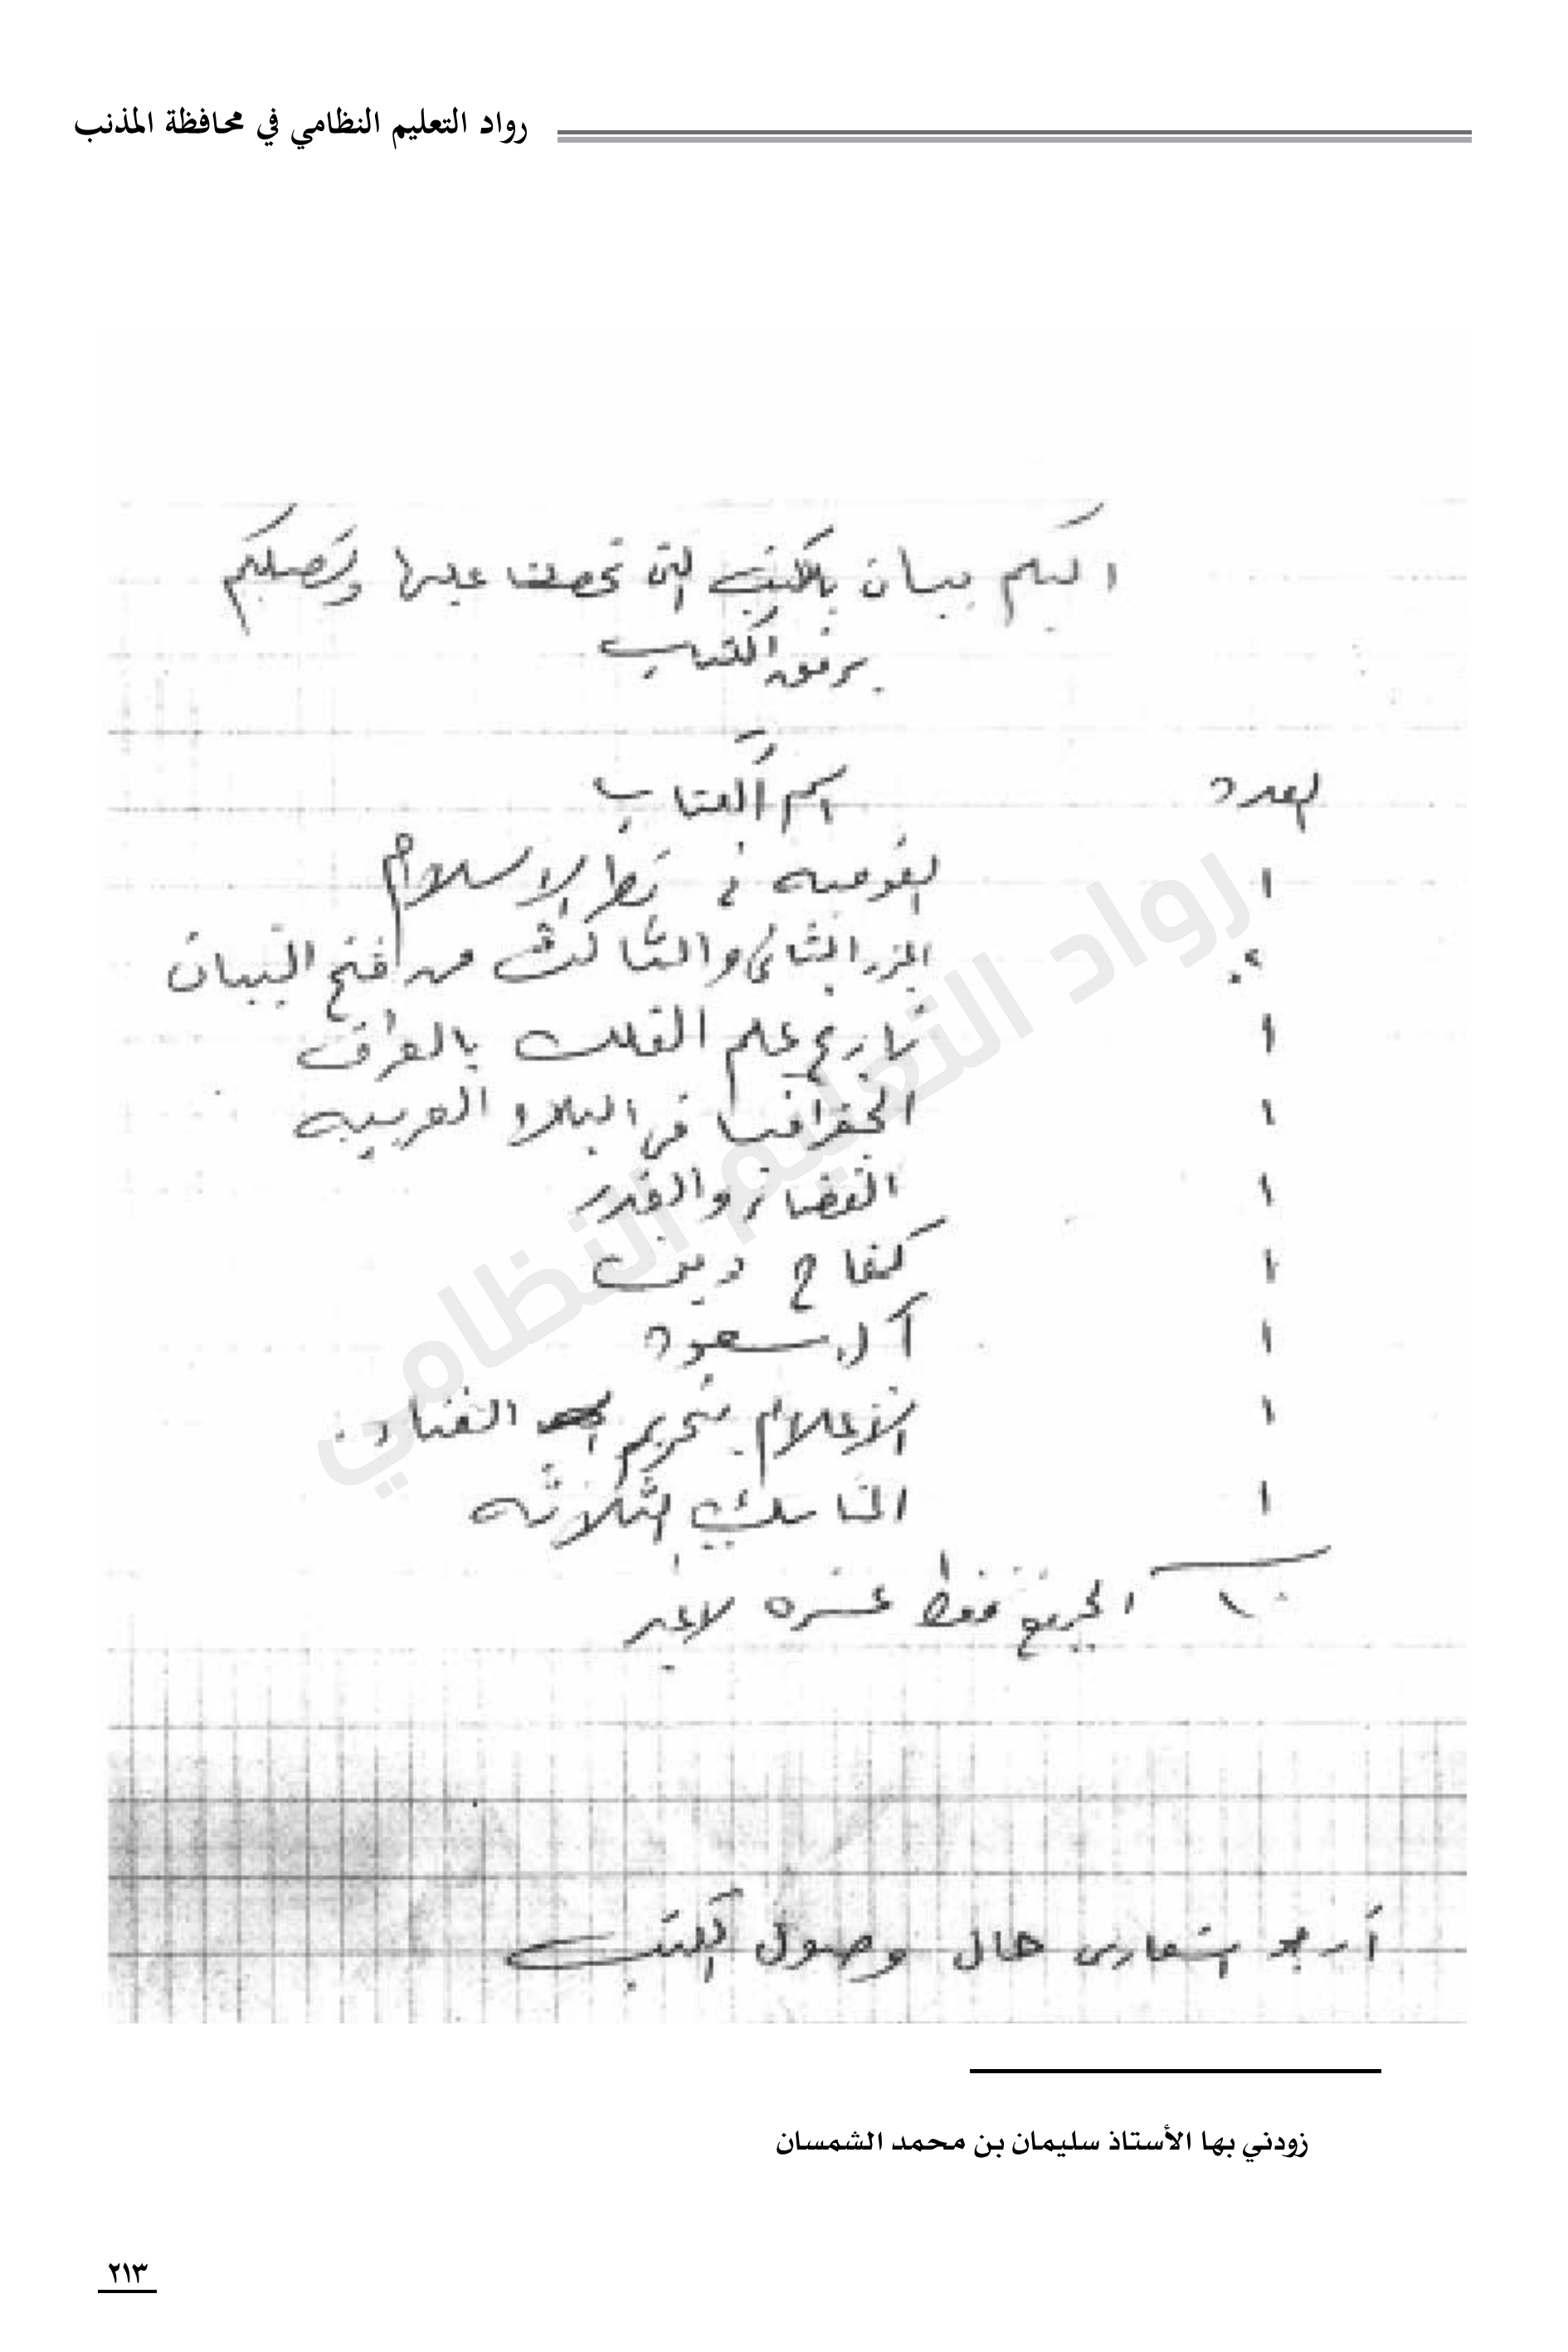 رواد التعليم النظامي في محافظة المذنب
اليكم بيان بالكتب التي تحصلت عليها وتصلكم
برفق الكتاب
العدد اسم الكتاب
١ القوميه في نظر الاسلام
٢ الجزء الثاني والثالث من فتح البيان
١ تاريخ علم الفلك بالعراق
١ الجغرافيا في البلاد العربيه
١ القضاء والقدر
١ كفاح دين
١ آل سعود
١ الاعلام بتحريم
١ المناسك الثلاثه
١٠ الجميع فقط عشره لاغير
أرجو اشعاري حال وصول الكتب
رواد التعليم النظامي
زودني بها الأستاذ سليمان بن محمد الشمسان
٢١٣